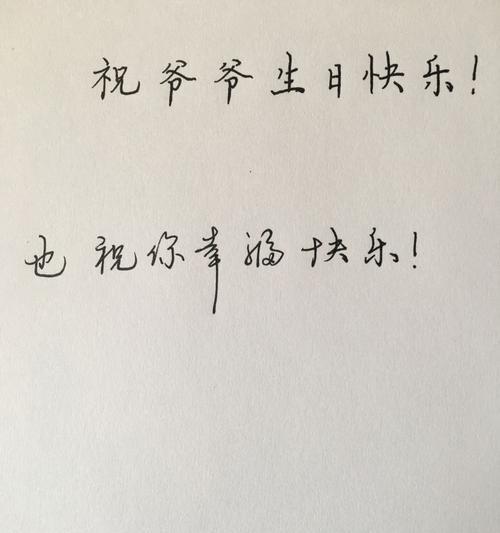 祝爷爷生日快乐!
也祝你幸福快乐!